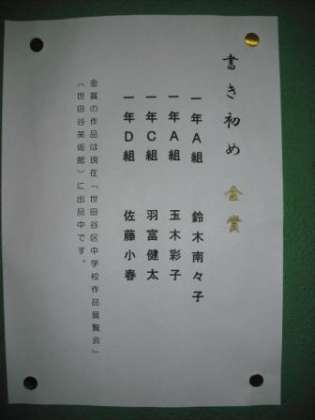 書き初め 金賞
一年A組 鈴木南々子
一年A組 玉木彩子
一年C組 羽富健太
一年D組 佐藤小春
金賞の作品は現在「世田谷区中学校作品展覧会」
（世田谷美術館）に出品中です。